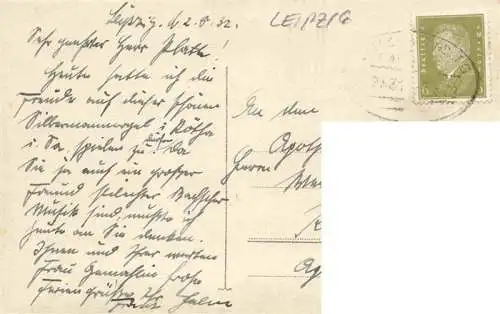 Leipzig, d. 2.8.32.
LEIPZIG
Sehr geehrter Herr Platte!
Heute hatte ich die
Freude auf dieser schönen
Silbermannorgel i. Rötha
i. Sa. spielen zu dürfen. Da
Sie ja auch ein großer
Freund schlichter Bachscher
Musik sind, mußte ich
heute an Sie denken.
Ihnen und Ihrer werten
Frau Gemahlin frohe
Feriengrüße Ihr
Helm
An den
Apoth
Herrn
Ap
Deutsches Reich
6 6